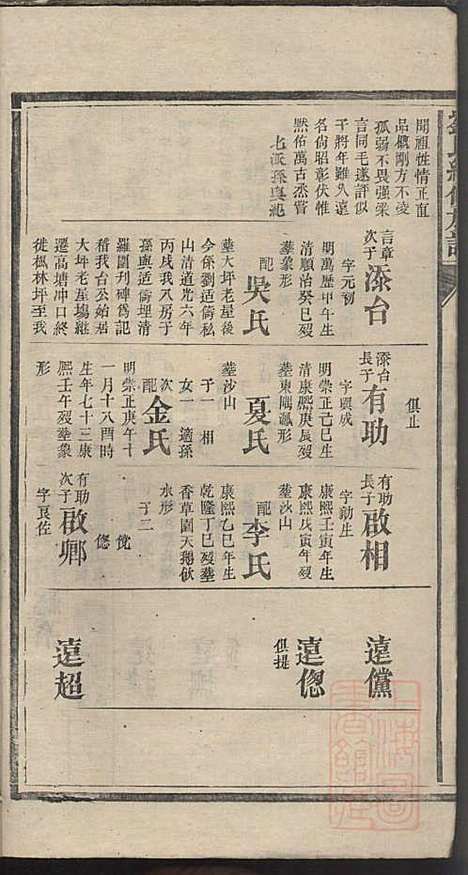 聞祖性情正直
品儀剛方不凌
孤弱不畏強梁
言同毛遂評似
干將年雖久遠
名尚昭彰伏惟
默佑萬古悉嘗
俱止
言章
次子
添台
字元初
明萬歷甲午生
清順治癸巳歿
葬象形
配
吳氏
葬大坪老屋後
今係劉適儔私
山清道光六年
丙戌我八房于
孫與適儔埋清
羅圍刊碑為記
稽我台公始居
大坪老屋塲繼
遷高塘冲口終
徙楓林坪至我
添台
長子
有助
字興成
明崇正己巳生
清康熙庚辰歿
葬東隅瓢形
配
夏氏
葬沙山
子一 相
女一 適孫
次
配
金氏
明崇正庚午十
一月十八酉時
生年七十三康
熙壬午歿葬象
形
有助
長子
啟相
字勳生
康熙壬寅年生
康熙戊寅年歿
葬沙山
配
李氏
康熙乙巳年生
乾隆丁巳歿葬
香草園天鵝伙
水形
子二
傥
偬
有助
次子
啟卿
字良佐
遠儻
遠偬
俱提
遠超